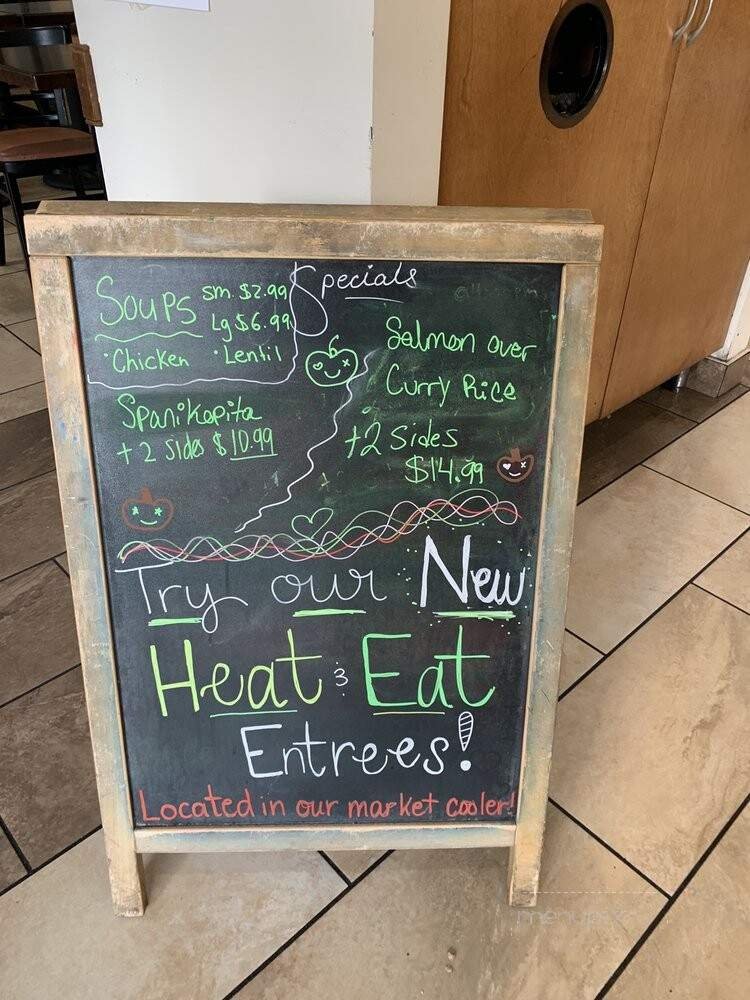 Specials
Soups sm. $2.99
Lg $6.99
·Chicken ·Lentil
Spanikopita
+ 2 sides $10.99
Salmon over
Curry Rice
+2 sides
$14.99
Try our New
Heat & Eat
Entrees!
Located in our market cooler!